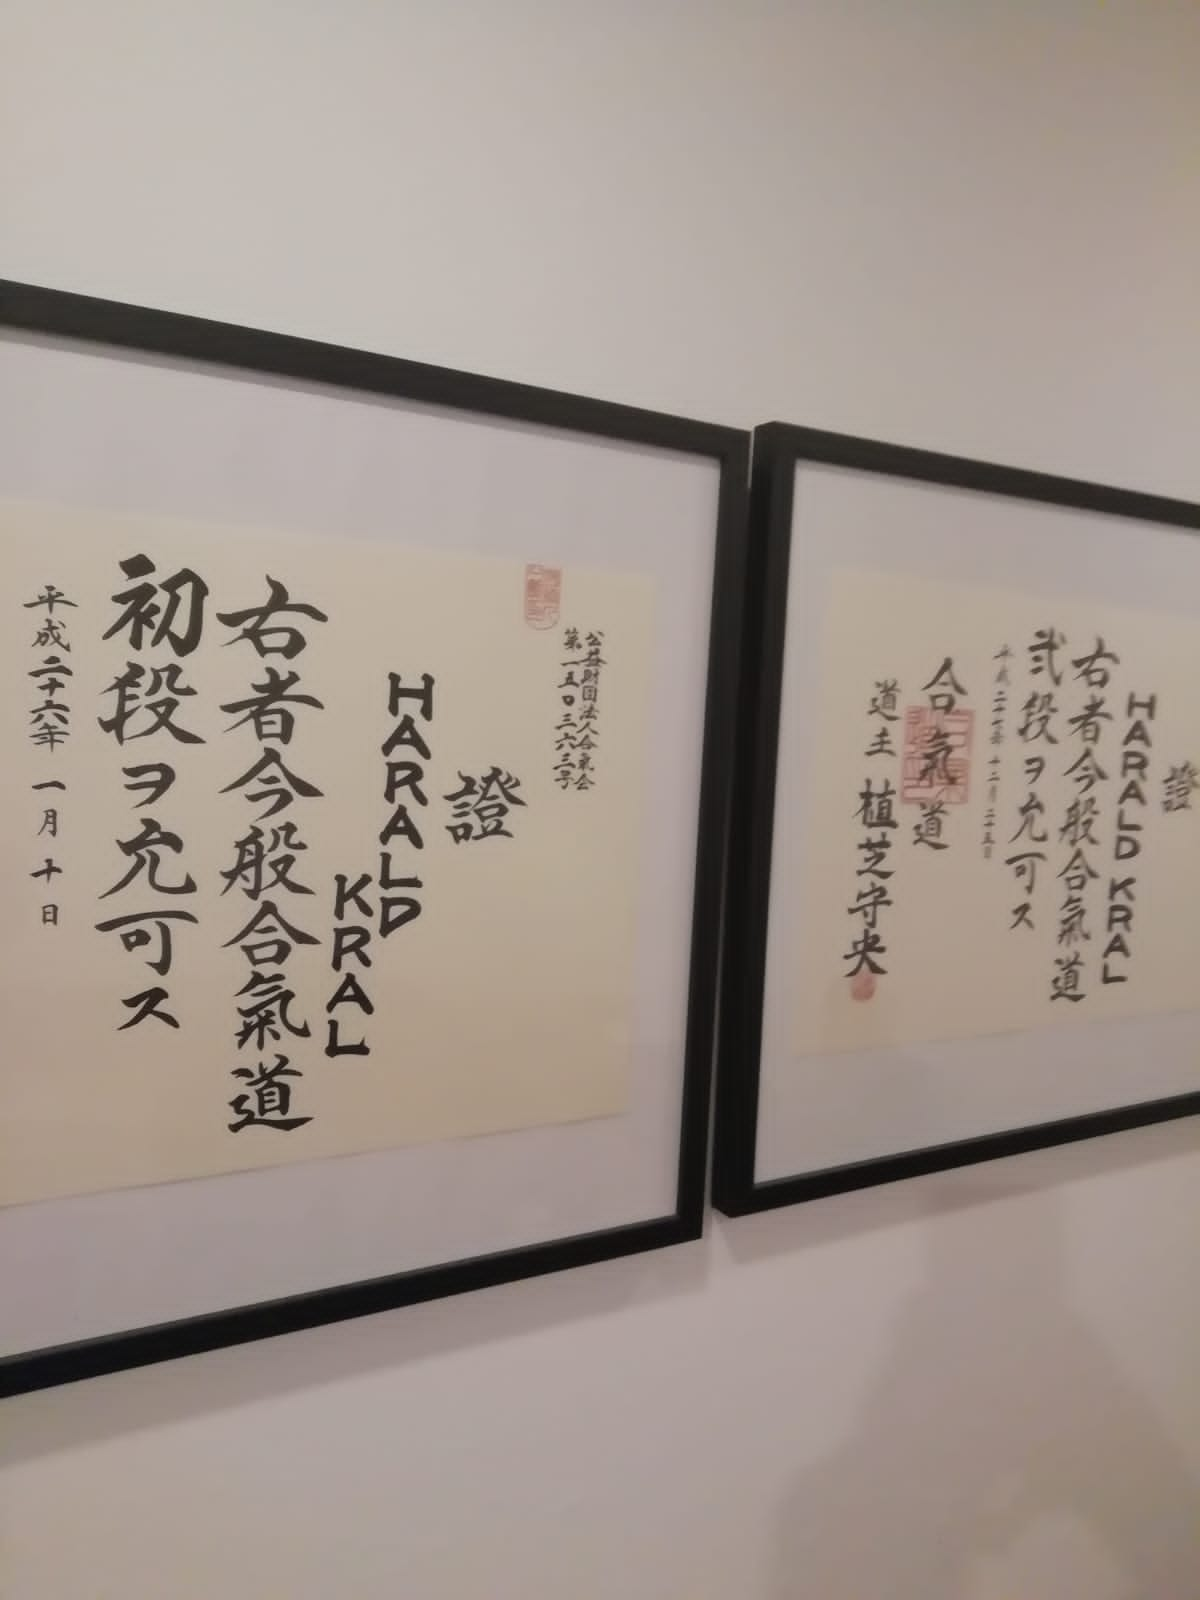 公益財団法人合氣会
第一五〇三六三号
證
HARALD
KRAL
右者今般合氣道
初段ヲ允可ス
平成二十六年一月十日
證
HARALD KRAL
右者今般合氣道
弐段ヲ允可ス
平成二十七年十二月二十五日
合氣道
道主 植芝守央